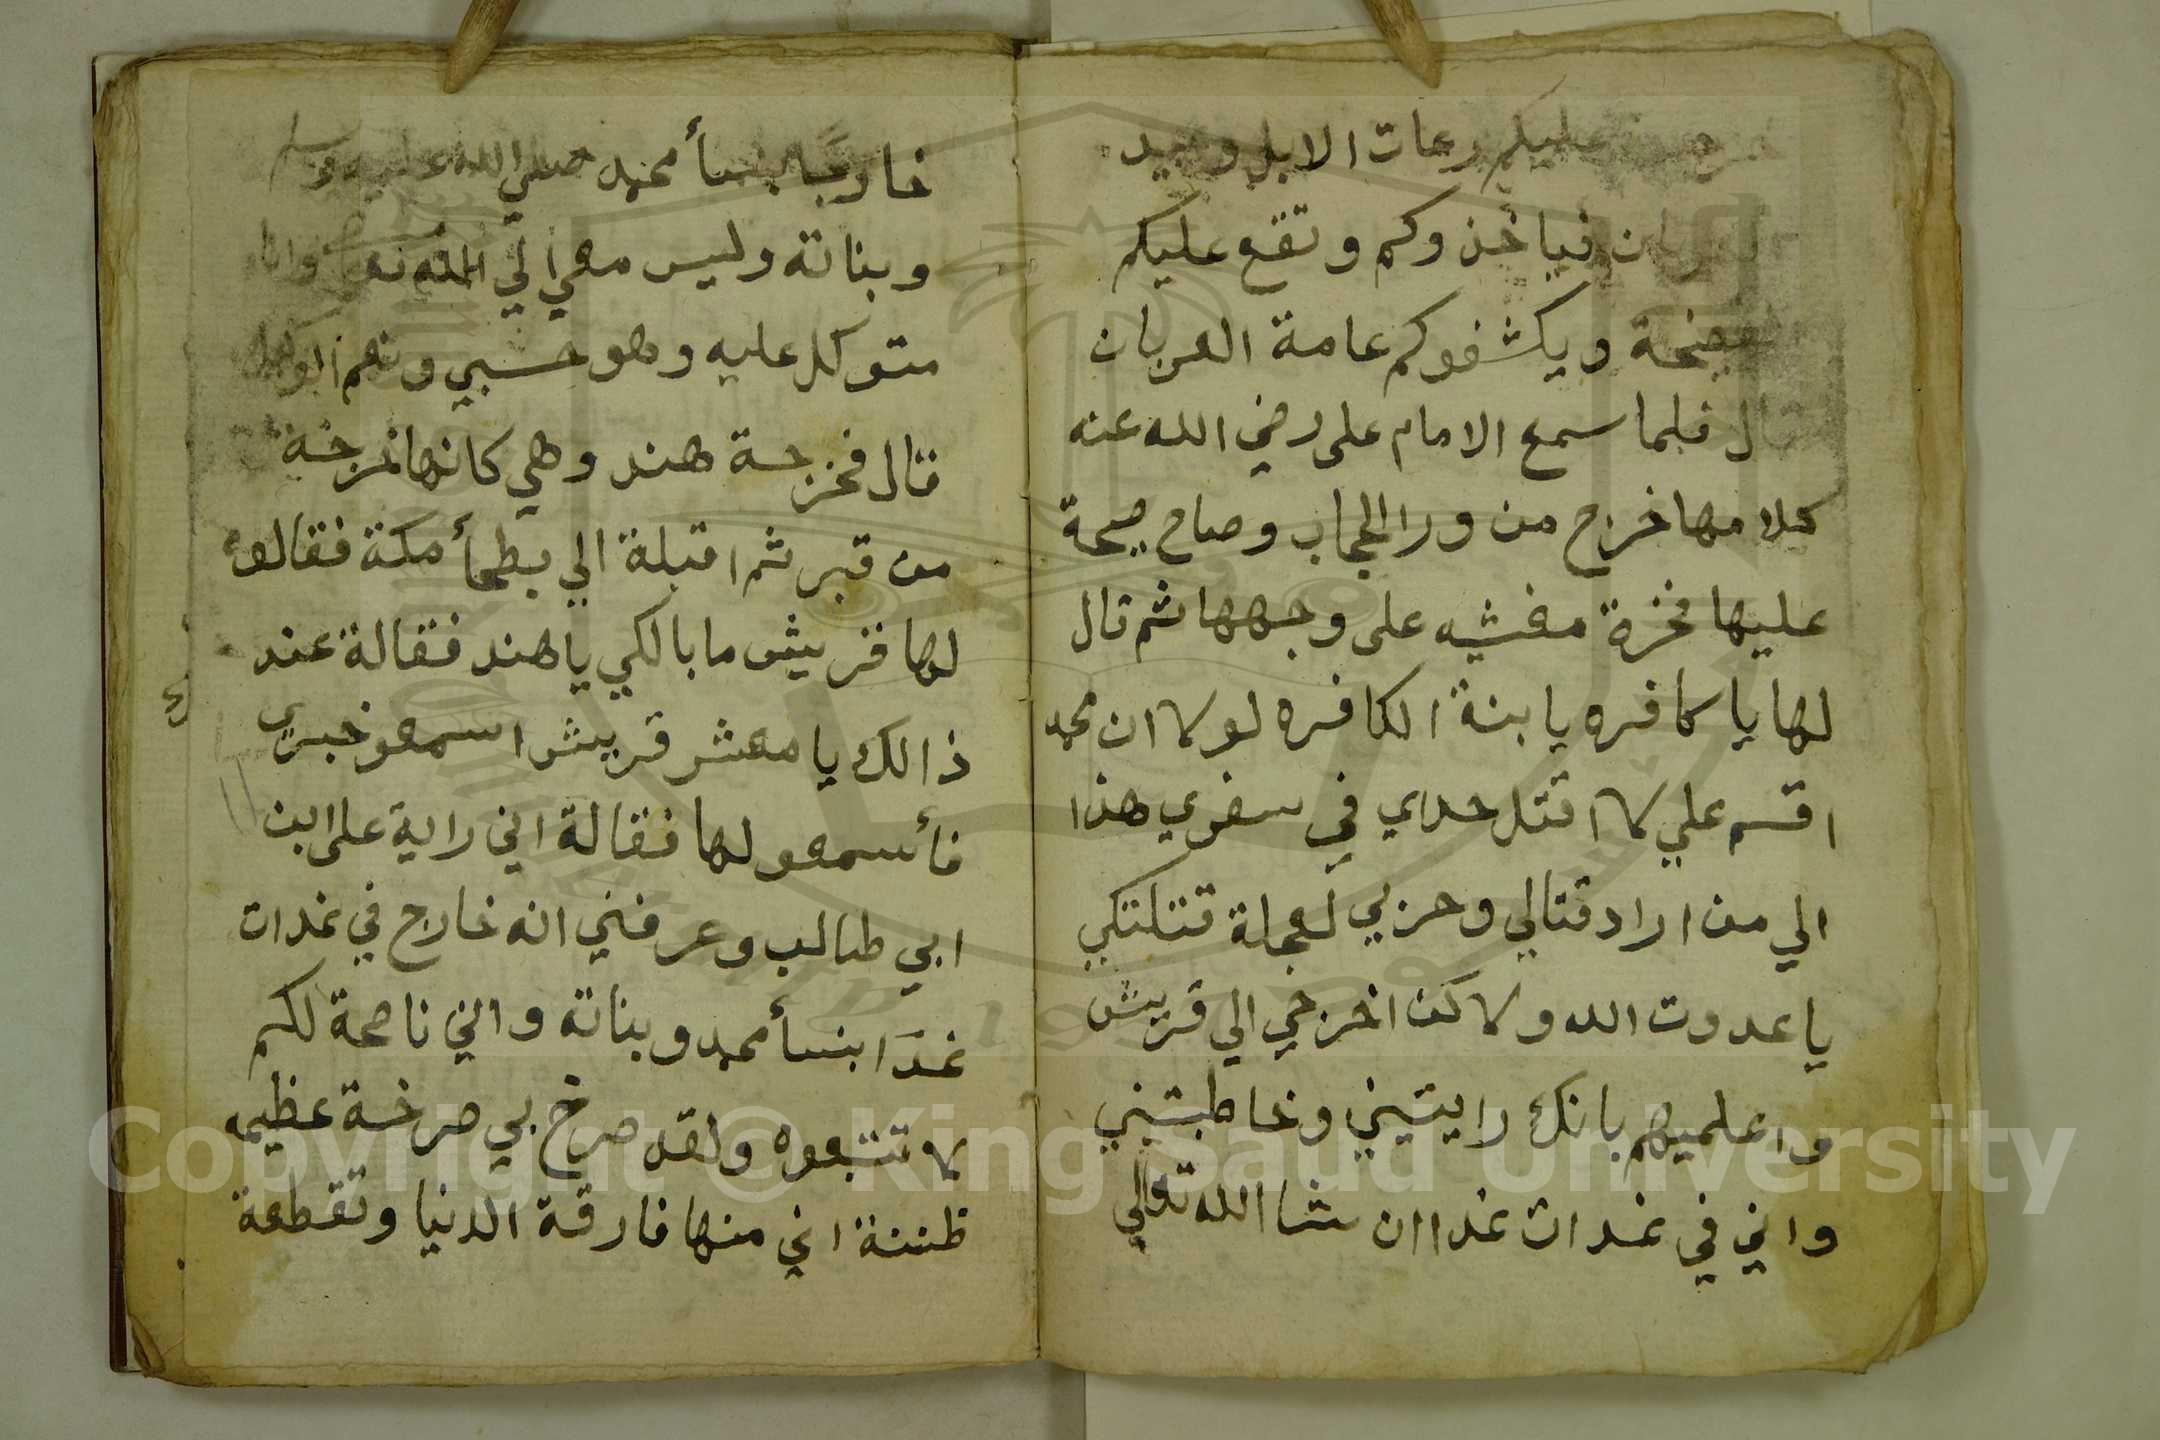 عليكم رعات الابل وعبيد
فياخذوكم وتقع عليكم
ويكشفوكم عامة العربان
قال فلما سمع الامام على رضي الله عنه
كلامها خرج من ورا الحجاب وصاح صيحة
عليها فخرة مغشيه على وجهها ثم قال
لها يا كافره يا بنة الكافره لولا ان محمد
اقسم علي لا اقتل حداي في سفري هذا
الي من اراد قتالي وحربي لعجلة قتلتكي
يا عدوت الله ولاكن اخرجي الي قريش
واعلميهم بانك رايتيني وخاطبتيني
واني في غدات غدا ان شا الله تعالي
خارجا بنسأ محمد صلي الله عليه وسلم
وبناته وليس معي الي الله تعا وانا
متوكل عليه وهو حسبي ونعم الوكيل
قال فخرجة هند وهي كانها خرجة
من قبر ثم اقبلة الي بطحأ مكة فقالوا
لها قريش ما بالكي يا هند فقالة عند
ذالك يا معشر قريش اسمعو خبري
فأسمعو لها فقالة اني راية على ابن
ابي طالب وعرفني انه خارج في غدات
غدا بنسأ محمد وبناته واني ناصحة لكم
لا تتبعوه ولقد صرخ بي صرخة عظيمه
ظننة اني منها فارقة الدنيا وتقطعة
Copyright © King Saud University